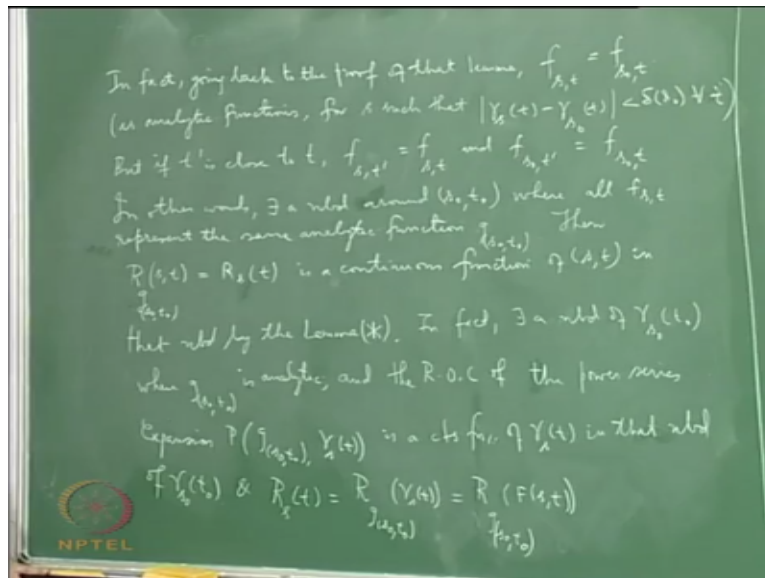 In fact, going back to the proof of that lemma, f_{s,t} = f_{s_0,t}
(as analytic functions, for s such that |γ_s(t) - γ_{s_0}(t)| < δ(s_0) ∀ t)
But if t' is close to t, f_{s,t'} = f_{s,t} and f_{s_0,t'} = f_{s_0,t}
In other words, ∃ a nbd around (s_0,t_0) where all f_{s,t}
represent the same analytic function g_{(s_0,t_0)} Then
R_{g_{(s_0,t_0)}}(s,t) = R_s(t) is a continuous function of (s,t) in
that nbd by the Lemma(*). In fact, ∃ a nbd of γ_{s_0}(t_0)
where g_{(s_0,t_0)} is analytic, and the R.O.C of the power series
Expansion P(g_{(s_0,t_0)}, γ_s(t)) is a cts func. of γ_s(t) in that nbd
of γ_{s_0}(t_0) & R_s(t) = R_{g_{(s_0,t_0)}}(γ_s(t)) = R_{g_{(s_0,t_0)}}(F(s,t))
NPTEL